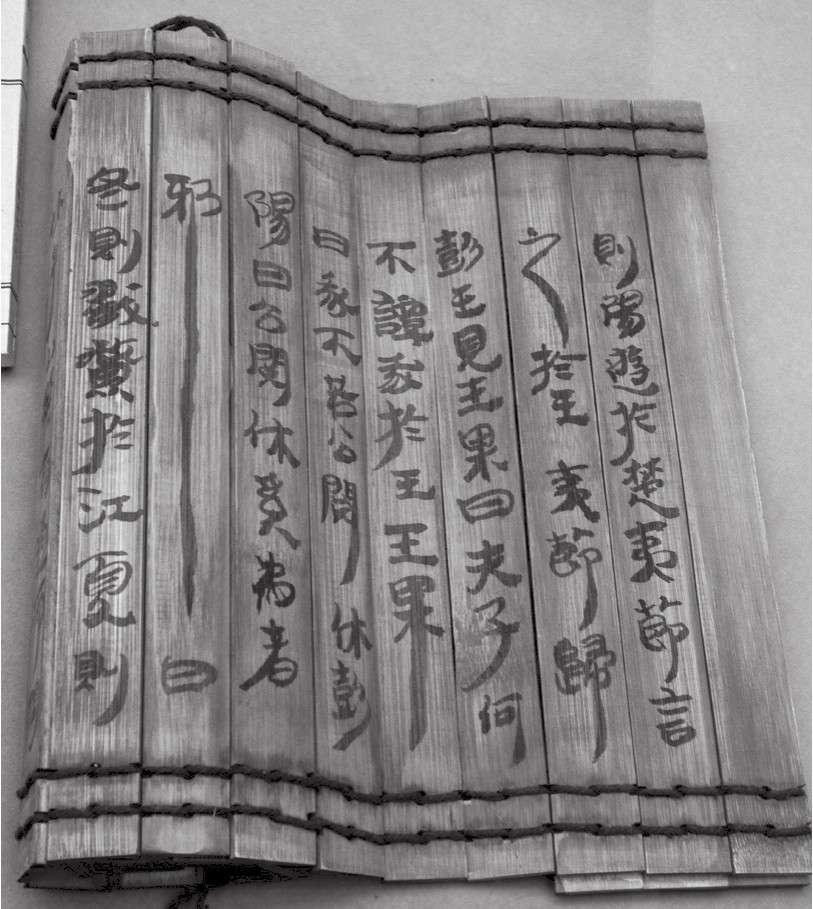 則陽遊於楚夷節言
之於王 夷節歸
彭王見王果曰夫子何
不譚我於王王果
曰我不若公閱休彭
陽曰公閱休奚為者
邪 曰
冬則戳鱉於江夏則